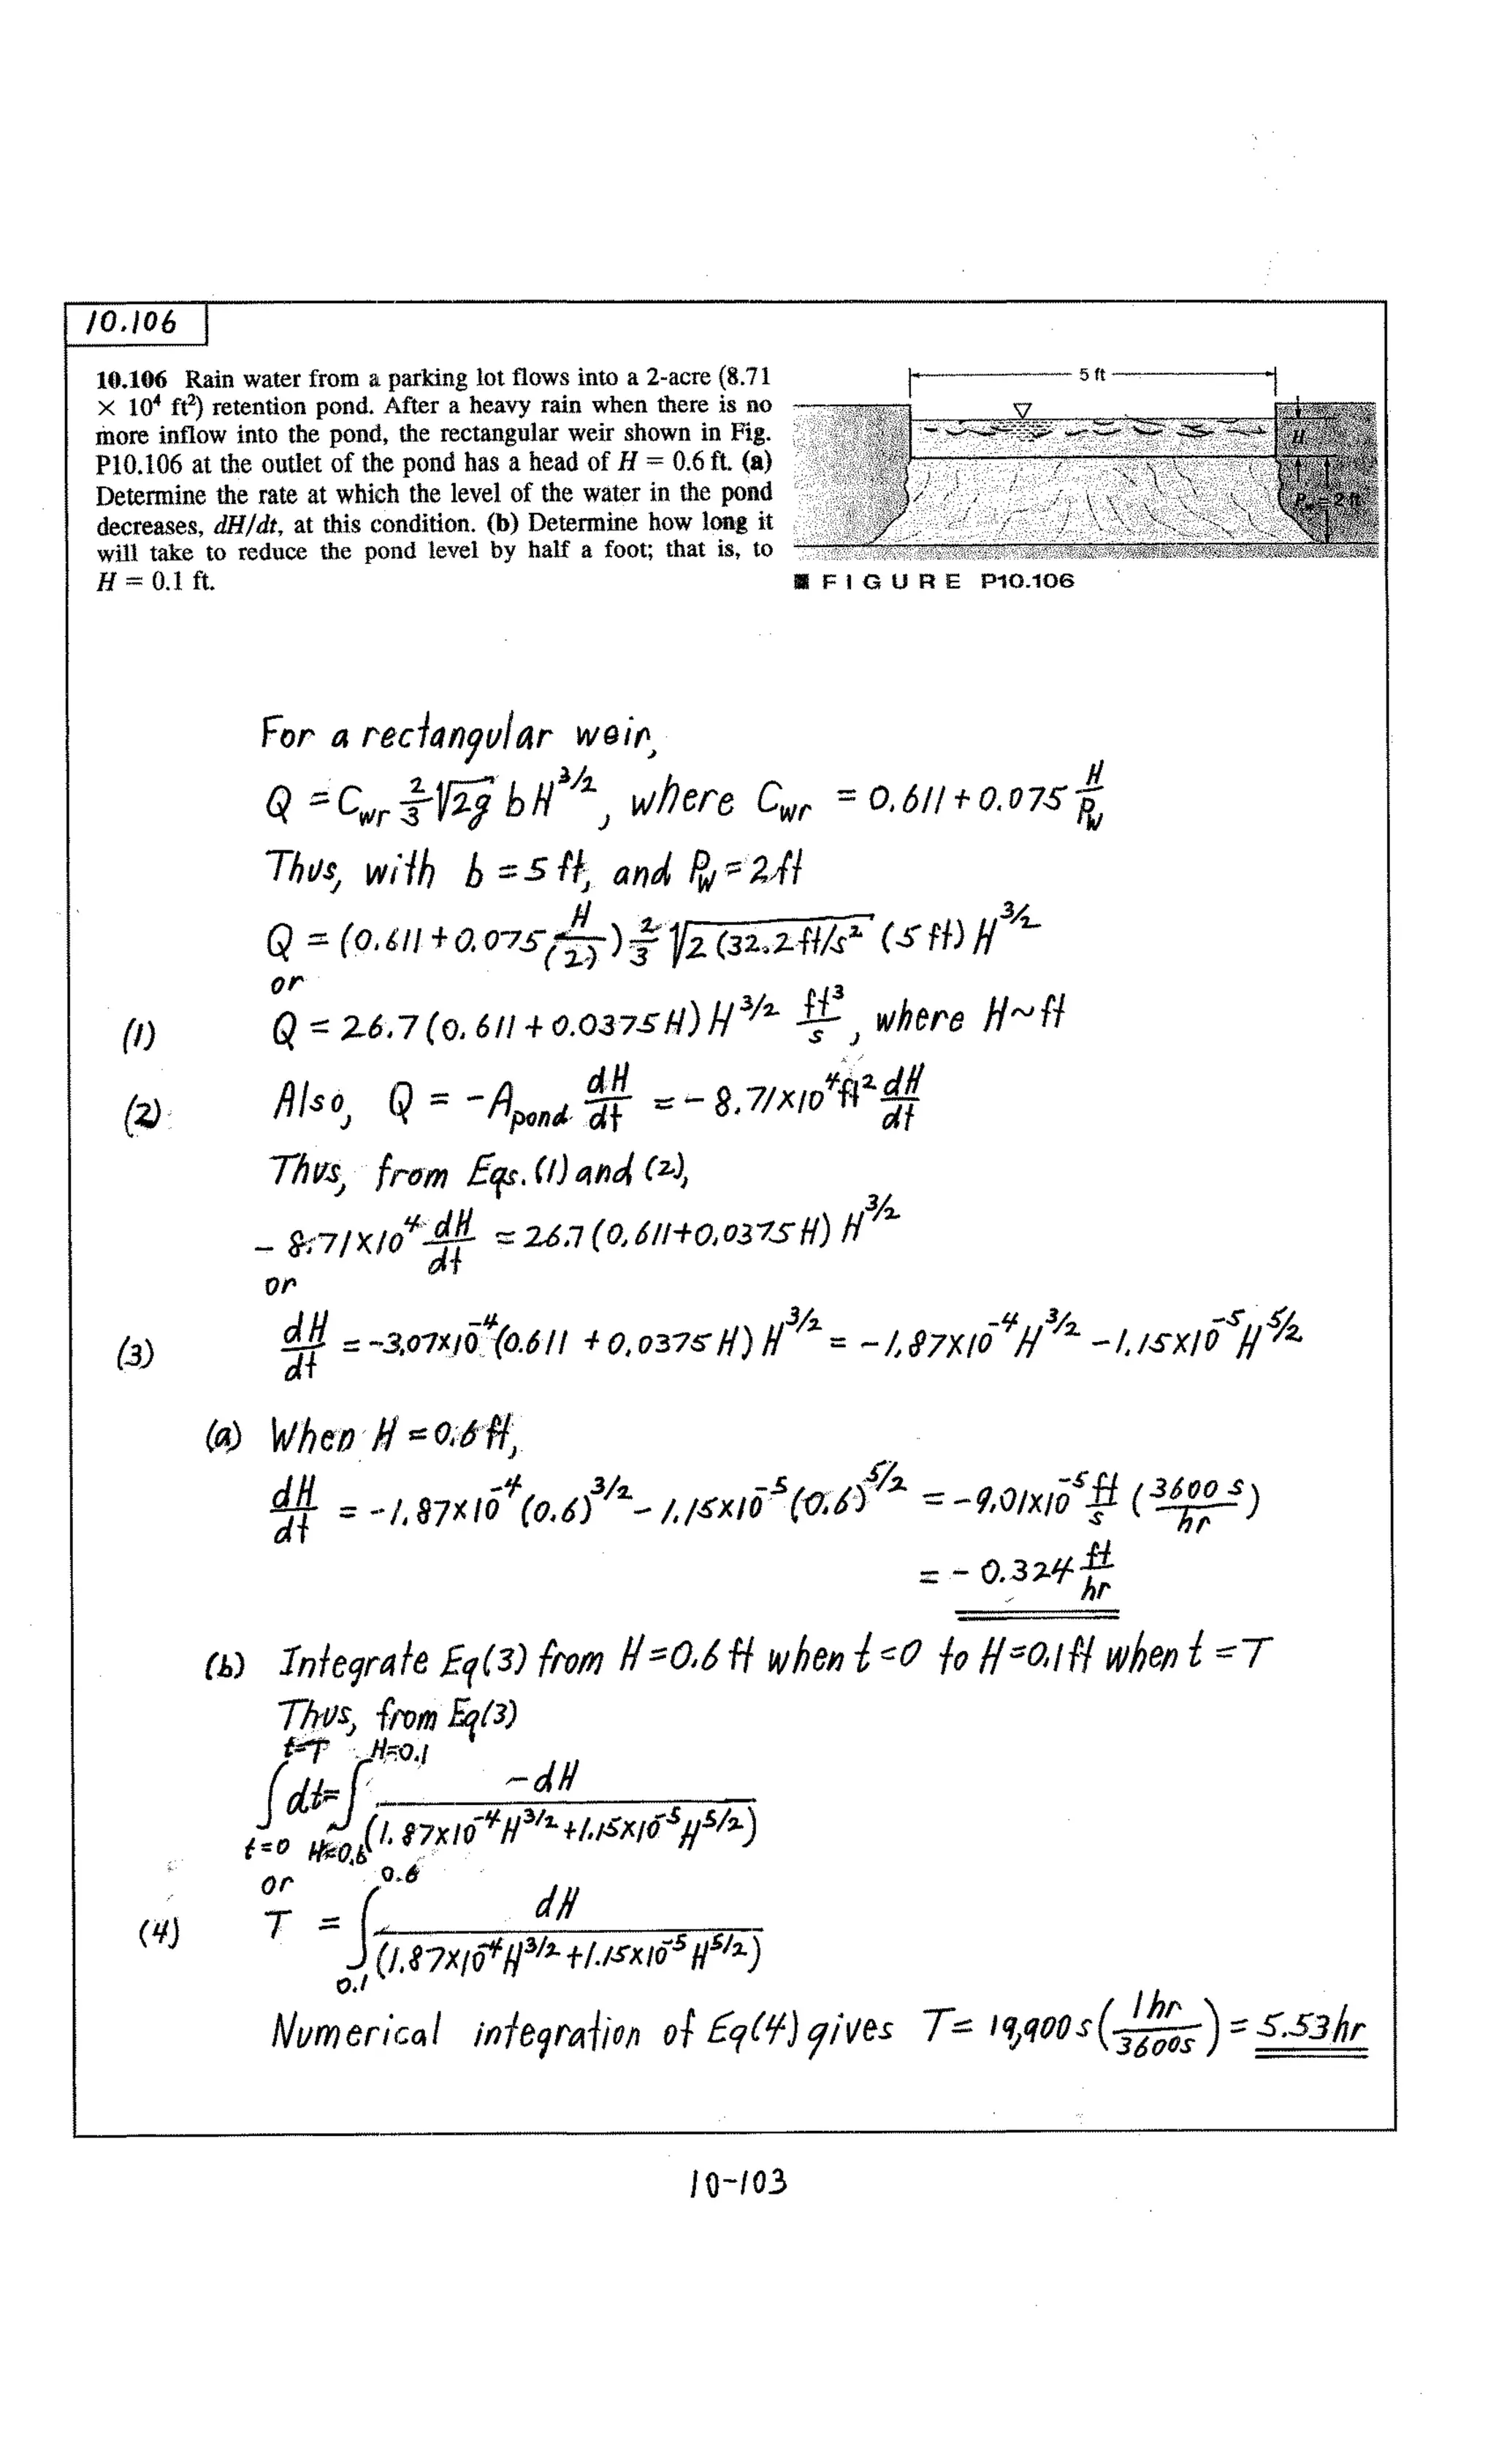 10.106
10.106 Rain water from a parking lot flows into a 2-acre (8.71
× 10⁴ ft²) retention pond. After a heavy rain when there is no
more inflow into the pond, the rectangular weir shown in Fig.
P10.106 at the outlet of the pond has a head of H = 0.6 ft. (a)
Determine the rate at which the level of the water in the pond
decreases, dH/dt, at this condition. (b) Determine how long it
will take to reduce the pond level by half a foot; that is, to
H = 0.1 ft.
5 ft
H
P_w = 2 ft
■ FIGURE P10.106
For a rectangular weir,
Q = C_wr 2/3 √2g b H^3/2, where C_wr = 0.611 + 0.075 H/P_w
Thus, with b = 5 ft, and P_w = 2 ft
Q = (0.611 + 0.075 H/(2)) 2/3 √2(32.2 ft/s² (5 ft) H^3/2
or
(1) Q = 26.7 (0.611 + 0.0375 H) H^3/2 ft³/s, where H ~ ft
(2) Also, Q = -A_pond dH/dt = -8.71×10⁴ ft² dH/dt
Thus, from Eqs. (1) and (2),
-8.71×10⁴ dH/dt = 26.7 (0.611 + 0.0375 H) H^3/2
or
(3) dH/dt = -3.07×10⁻⁴ (0.611 + 0.0375 H) H^3/2 = -1.87×10⁻⁴ H^3/2 - 1.15×10⁻⁵ H^5/2
(a) When H = 0.6 ft,
dH/dt = -1.87×10⁻⁴ (0.6)^3/2 - 1.15×10⁻⁵ (0.6)^5/2 = -9.01×10⁻⁵ ft/s (3600 s/hr)
= -0.324 ft/hr
(b) Integrate Eq(3) from H = 0.6 ft when t = 0 to H = 0.1 ft when t = T
Thus, from Eq(3)
t=T H=0.1
∫dt = ∫ -dH/(1.87×10⁻⁴ H^3/2 + 1.15×10⁻⁵ H^5/2)
t=0 H=0.6
or 0.6
(4) T = ∫ dH/(1.87×10⁻⁴ H^3/2 + 1.15×10⁻⁵ H^5/2)
0.1
Numerical integration of Eq(4) gives T = 19,900 s (1 hr/3600s) = 5.53 hr
10-103